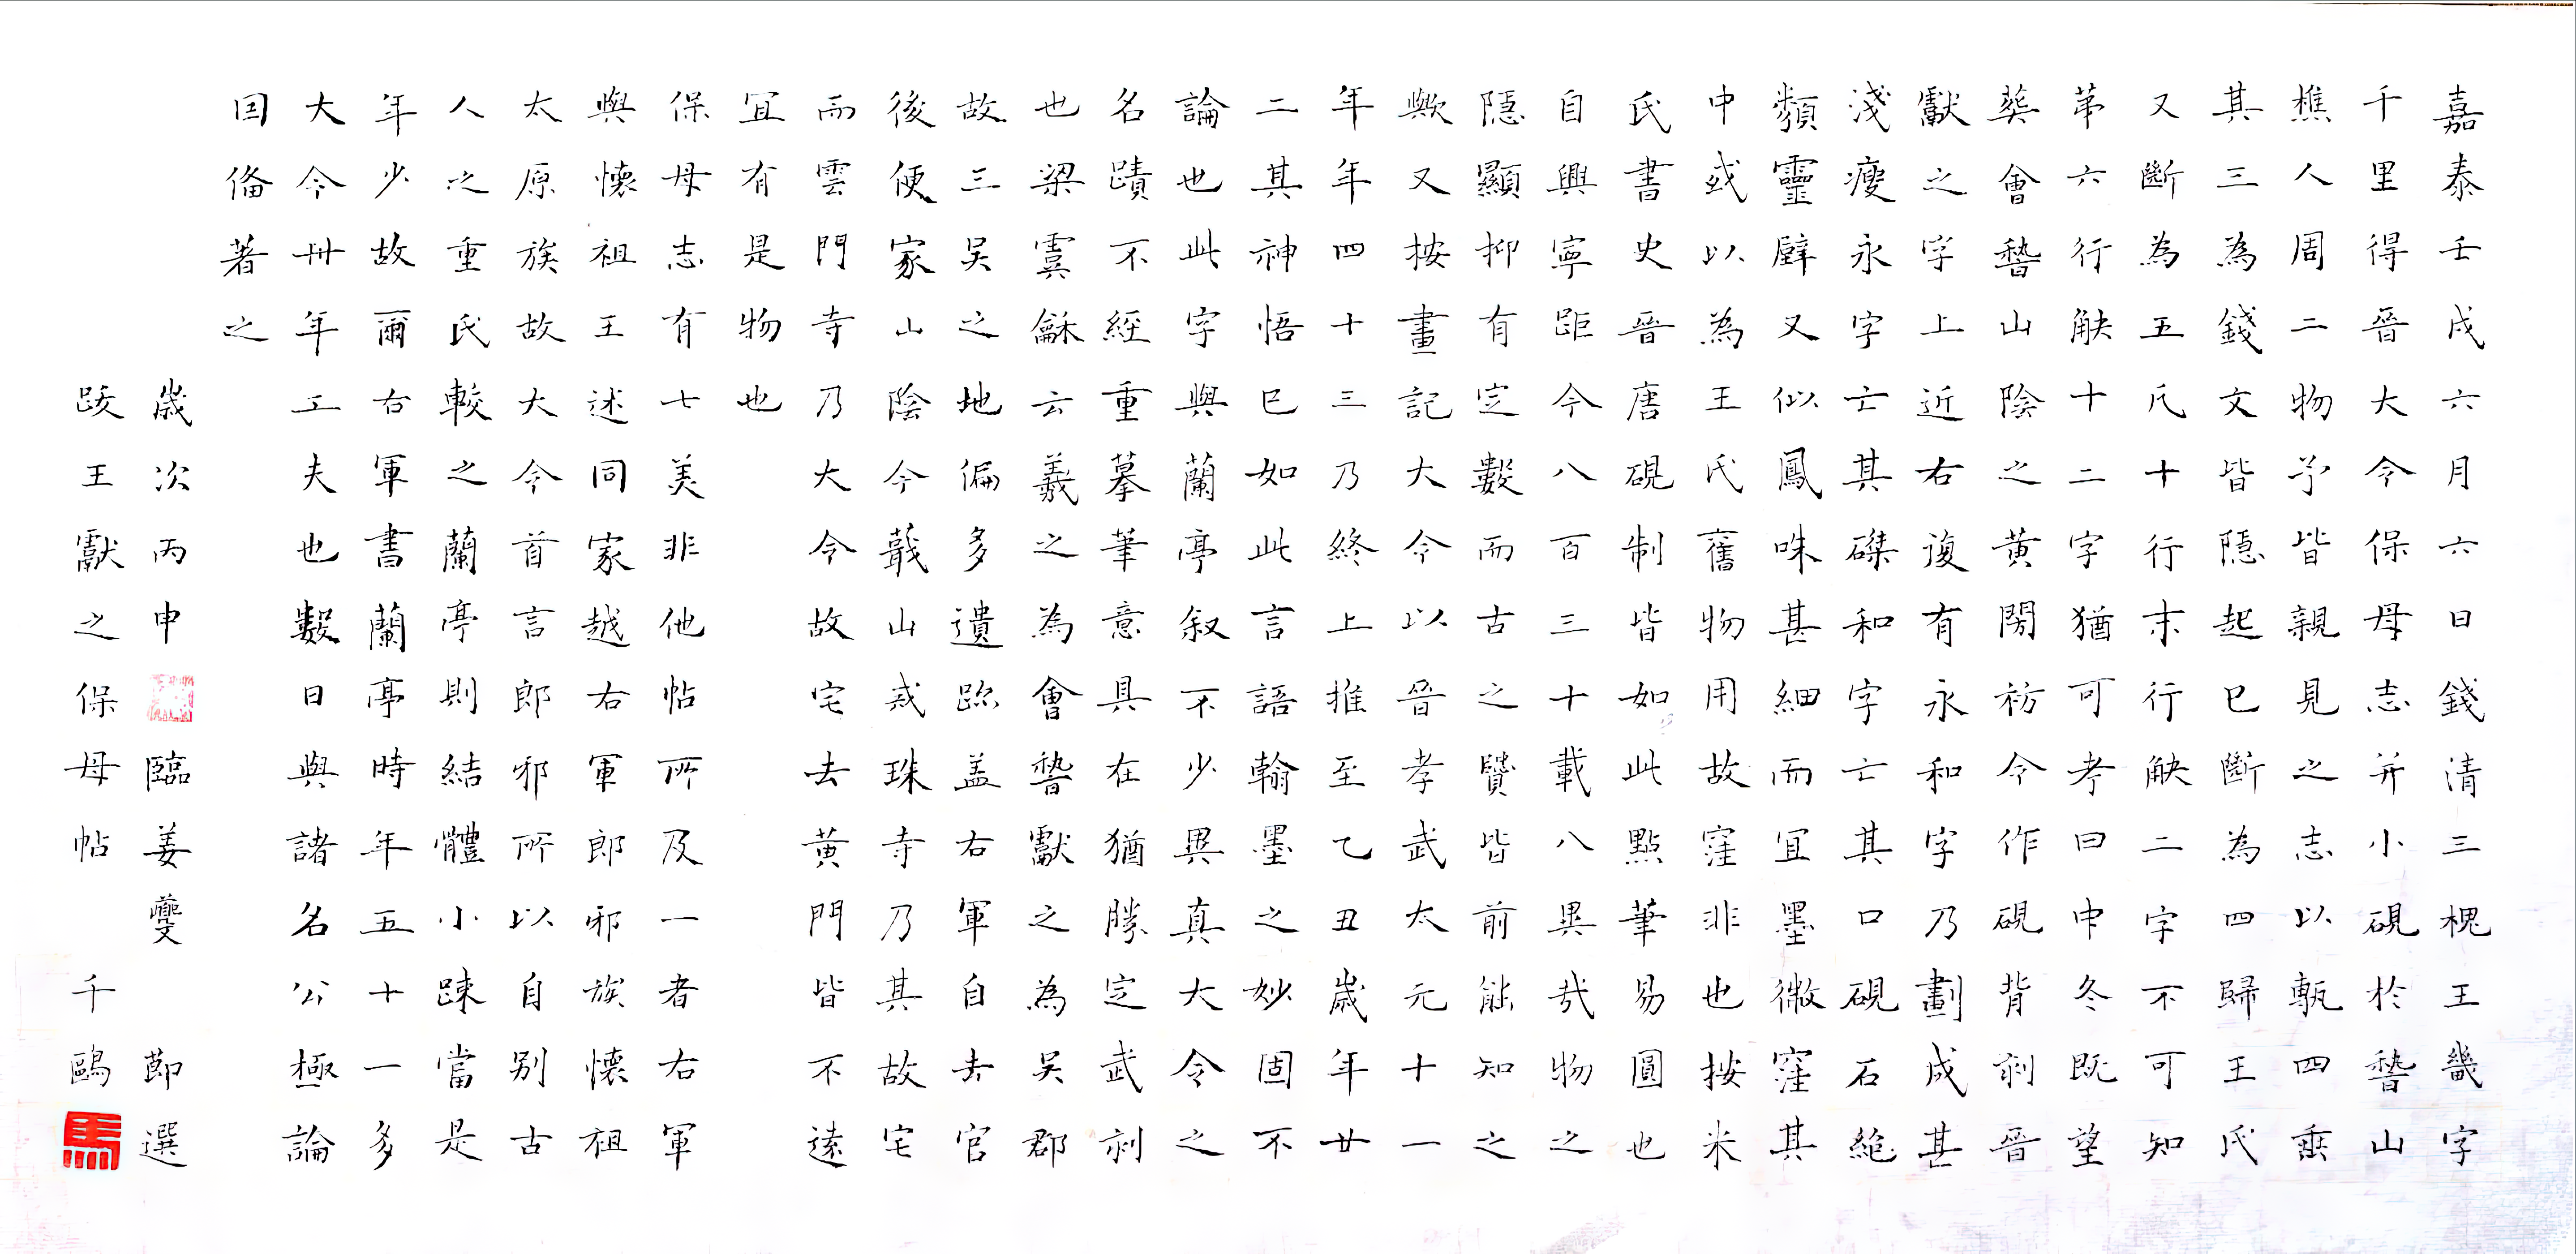 嘉泰壬戌六月六日錢清三槐王畿字
千里得晉大令保母志并小硯於稽山
樵人周二物予皆親見之志以甎四垂
其三為錢文皆隱起已斷為四歸王氏
又斷為五凡十行末行缺二字不可知
第六行缺十二字猶可考曰中冬既望
葬會稽山陰之黃閍祊今作硯背刻晉
獻之字上近右復有永和字乃劃成甚
淺瘦永字亡其磔和字亡其口硯石絕
類靈壁又似鳳咮甚細而宜墨微窪其
中或以為王氏舊物用故窪非也按米
氏書史晉唐硯制皆如此點筆易圓也
自興寧距今八百三十載八異哉物之
隱顯抑有定數而古之贒皆前能知之
歟又按畫記大令以晉孝武太元十一
年年四十三乃終上推至乙丑歲年廿
二其神悟已如此言語翰墨之妙固不
論也此字與蘭亭叙不少異真大令之
名蹟不經重摹筆意具在猶勝定武刻
也梁虞龢云羲之為會稽獻之為吳郡
故三吳之地偏多遺跡蓋右軍自去官
後便家山陰今蕺山戒珠寺乃其故宅
而雲門寺乃大令故宅去黃門皆不遠
宜有是物也
保母志有七美非他帖所及一者右軍
與懷祖王述同家越右軍郎邪族懷祖
太原族故大令首言郎邪所以自別古
人之重氏較之蘭亭則結體小踈當是
年少故爾右軍書蘭亭時年五十一多
大令卅年工夫也數日與諸名公極論
因俻著之
歲次丙申 臨姜夔 節選
跋王獻之保母帖 千鷗
馬